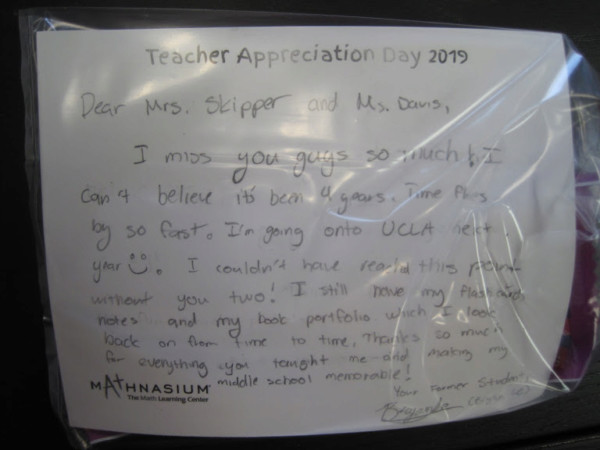 Teacher Appreciation Day 2019
Dear Mrs. Skipper and Ms. Davis,
I miss you guys so much! I
can't believe it's been 4 years. Time flys
by so fast. I'm going onto UCLA next
year. I couldn't have reach'd this point
without you two! I still have my flashcards
notes and my book portfolio which I look
back on from time to time. Thanks so much
for everything you taught me and making my
middle school memorable!
Your Former Student,
MATHNASIUM
The Math Learning Center